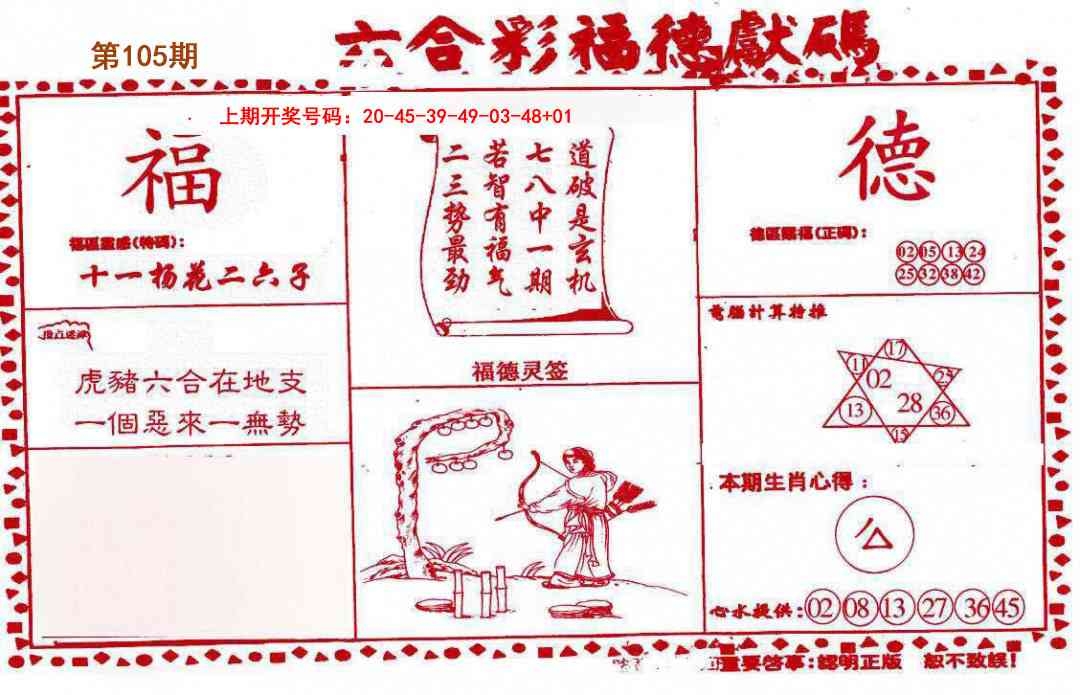 六合彩福德獻碼
第105期
上期开奖号码：20-45-39-49-03-48+01
福
福區靈感(特碼):
十一杨花二六子
虎豬六合在地支
一個惡來一無勢
道破是玄机
七八中一期
若智有福气
二三势最劲
福德灵签
德
德區賜福(正碼):
02 05 13 24
25 32 38 42
電腦計算特推
17
11
02
25
13
28
36
15
本期生肖心得：
心水提供:02 08 13 27 36 45
重要啓事:認明正版 恕不致誤!